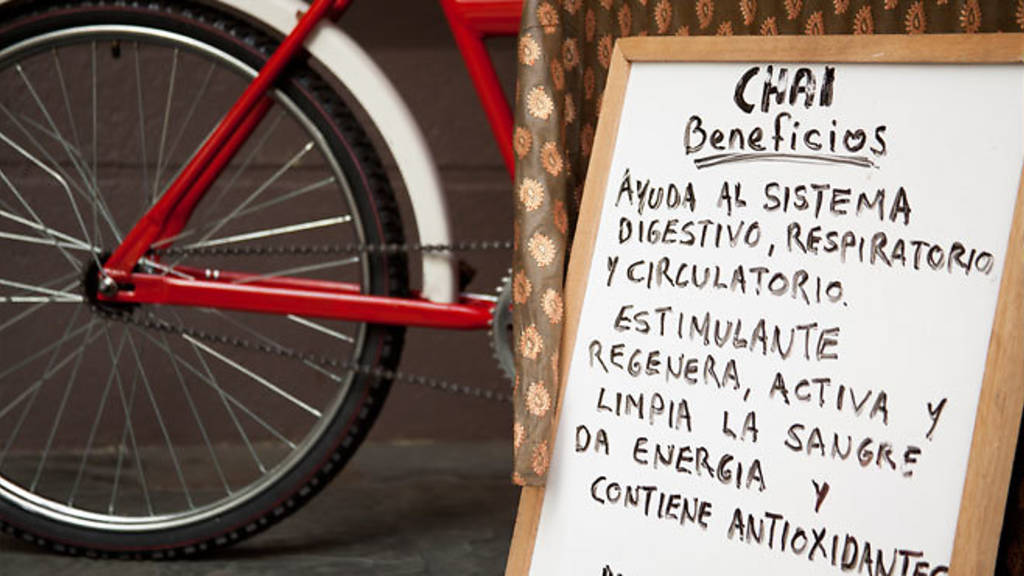 CHAI
Beneficios
AYUDA AL SISTEMA
DIGESTIVO, RESPIRATORIO
Y CIRCULATORIO.
ESTIMULANTE
REGENERA, ACTIVA Y
LIMPIA LA SANGRE
DA ENERGIA Y
CONTIENE ANTIOXIDANTES